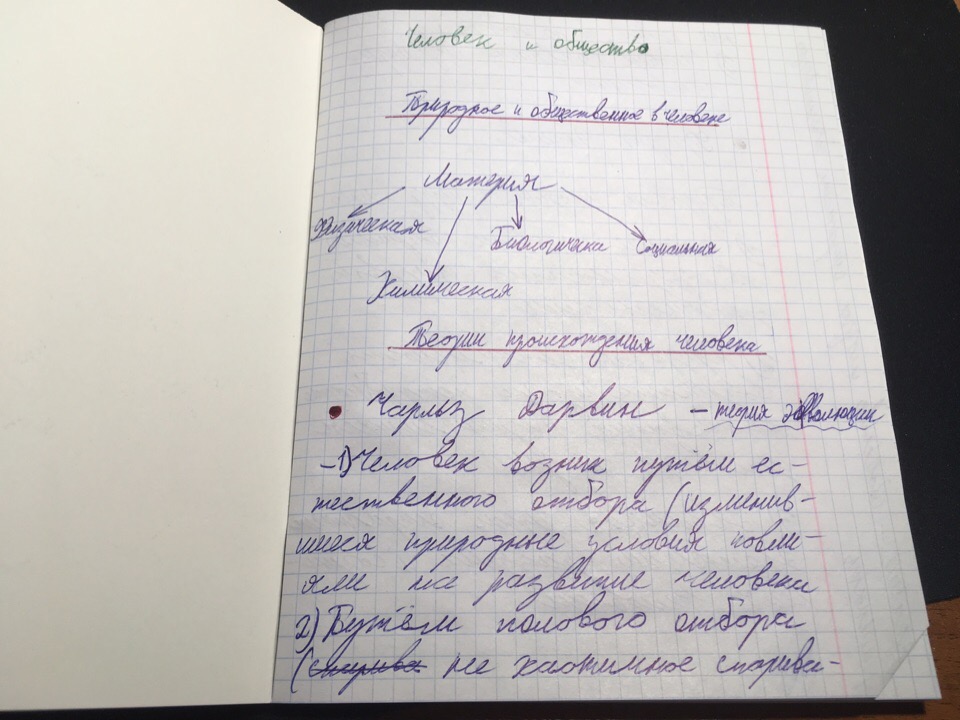 Человек и общество
Природное и общественное в человеке
Материя
Физическая
Биологическая
Социальная
Химическая
Теории происхождения человека
Чарльз Дарвин - теория эволюции
-1) Человек возник путём ес-
тественного отбора (изменив-
шиеся природные условия повли-
яли на развитие человека
2) Путём полового отбора
(спарива не хаотичное спарива-